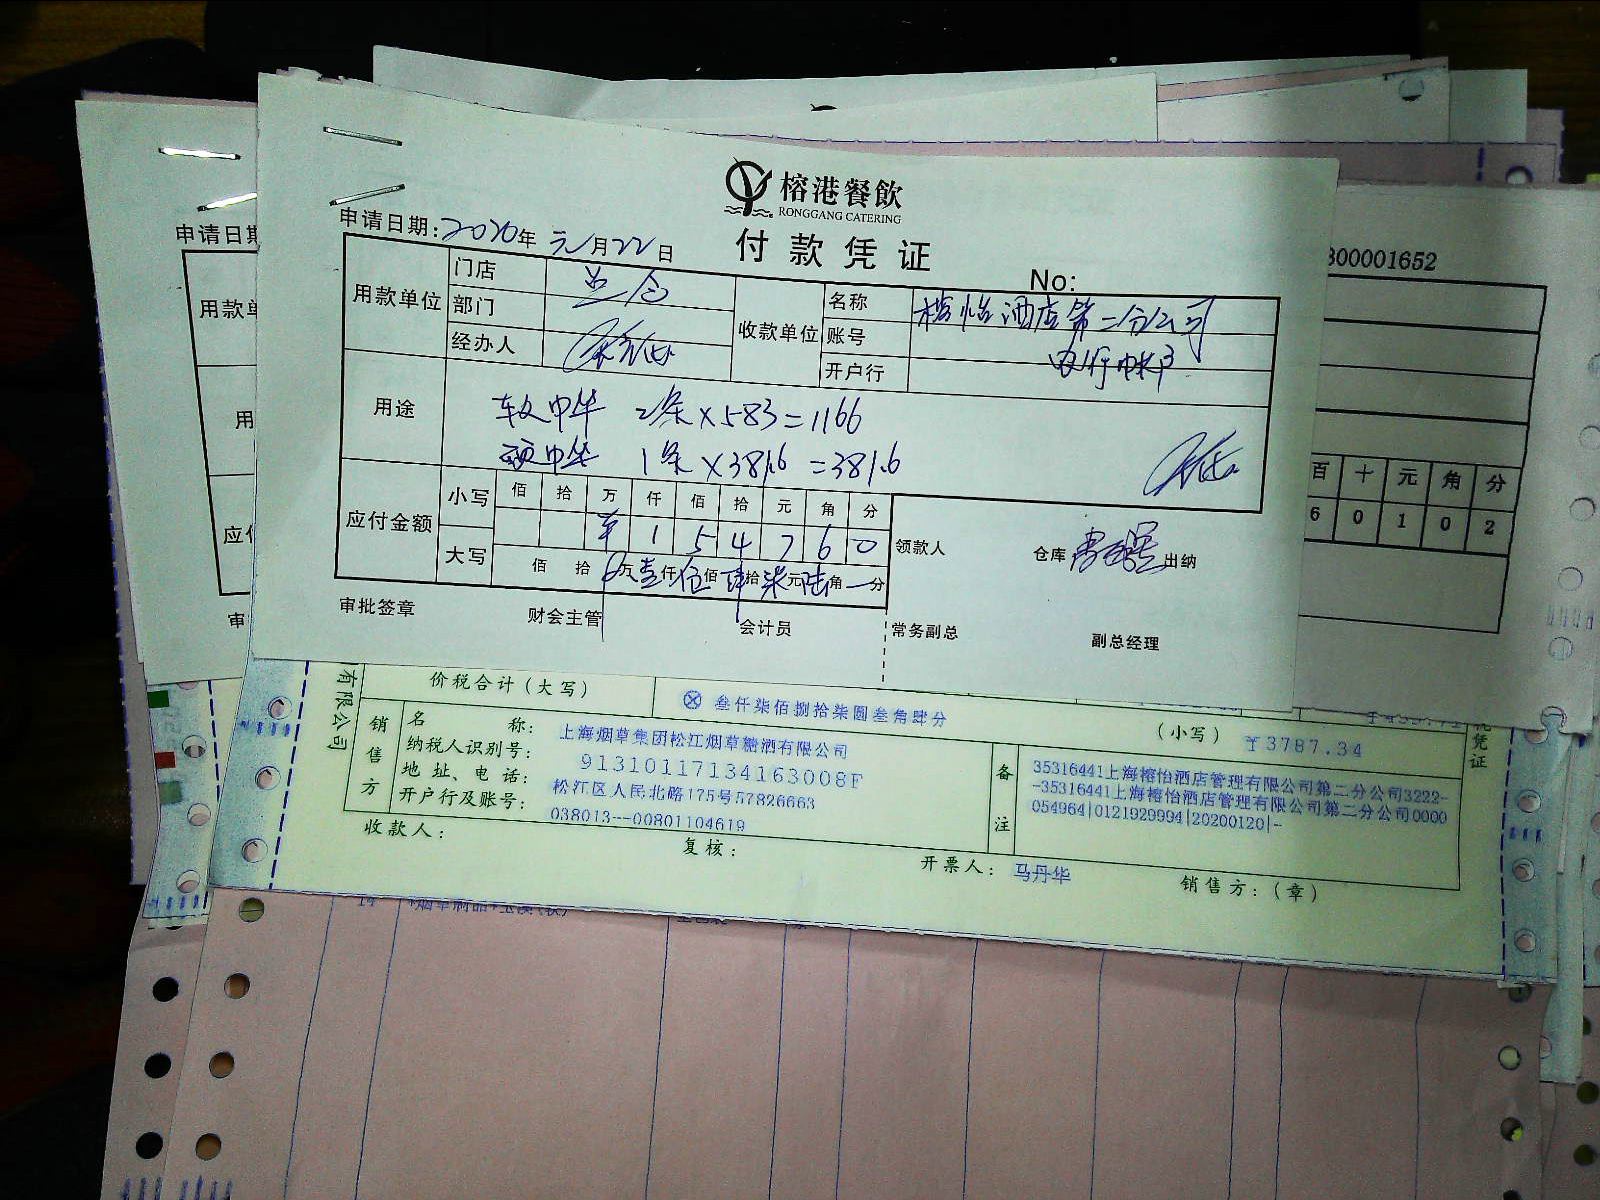 榕港餐飲
RONGGANG CATERING
付款凭证
申请日期:2020年 元月22日
No:
用款单位 门店
部门
经办人
收款单位 名称 榕怡酒店第二分公司
账号
开户行
用途
软中华 2条×583=1166
硬中华 1条×381.6=381.6
应付金额 小写 佰 拾 万 仟 佰 拾 元 角 分
¥ 1 5 4 7 6 0
大写 佰 拾 万壹仟伍佰肆拾柒元陆角一分
领款人 仓库 出纳
审批签章 财会主管 会计员 常务副总 副总经理
申请日期
用款单
用
应付
审
300001652
百 十 元 角 分
6 0 1 0 2
有限公司
价税合计(大写) ⊗ 叁仟柒佰捌拾柒圆叁角肆分 (小写) ¥3787.34
销售方
名称: 上海烟草集团松江烟草糖酒有限公司
纳税人识别号: 91310117134163008F
地址、电话: 松江区人民北路175号57826663
开户行及账号: 038013---00801104619
备注
35316441上海榕怡酒店管理有限公司第二分公司3222-
-35316441上海榕怡酒店管理有限公司第二分公司0000
054964|0121929994|20200120|-
收款人: 复核: 开票人: 马丹华 销售方:(章)
凭证
14